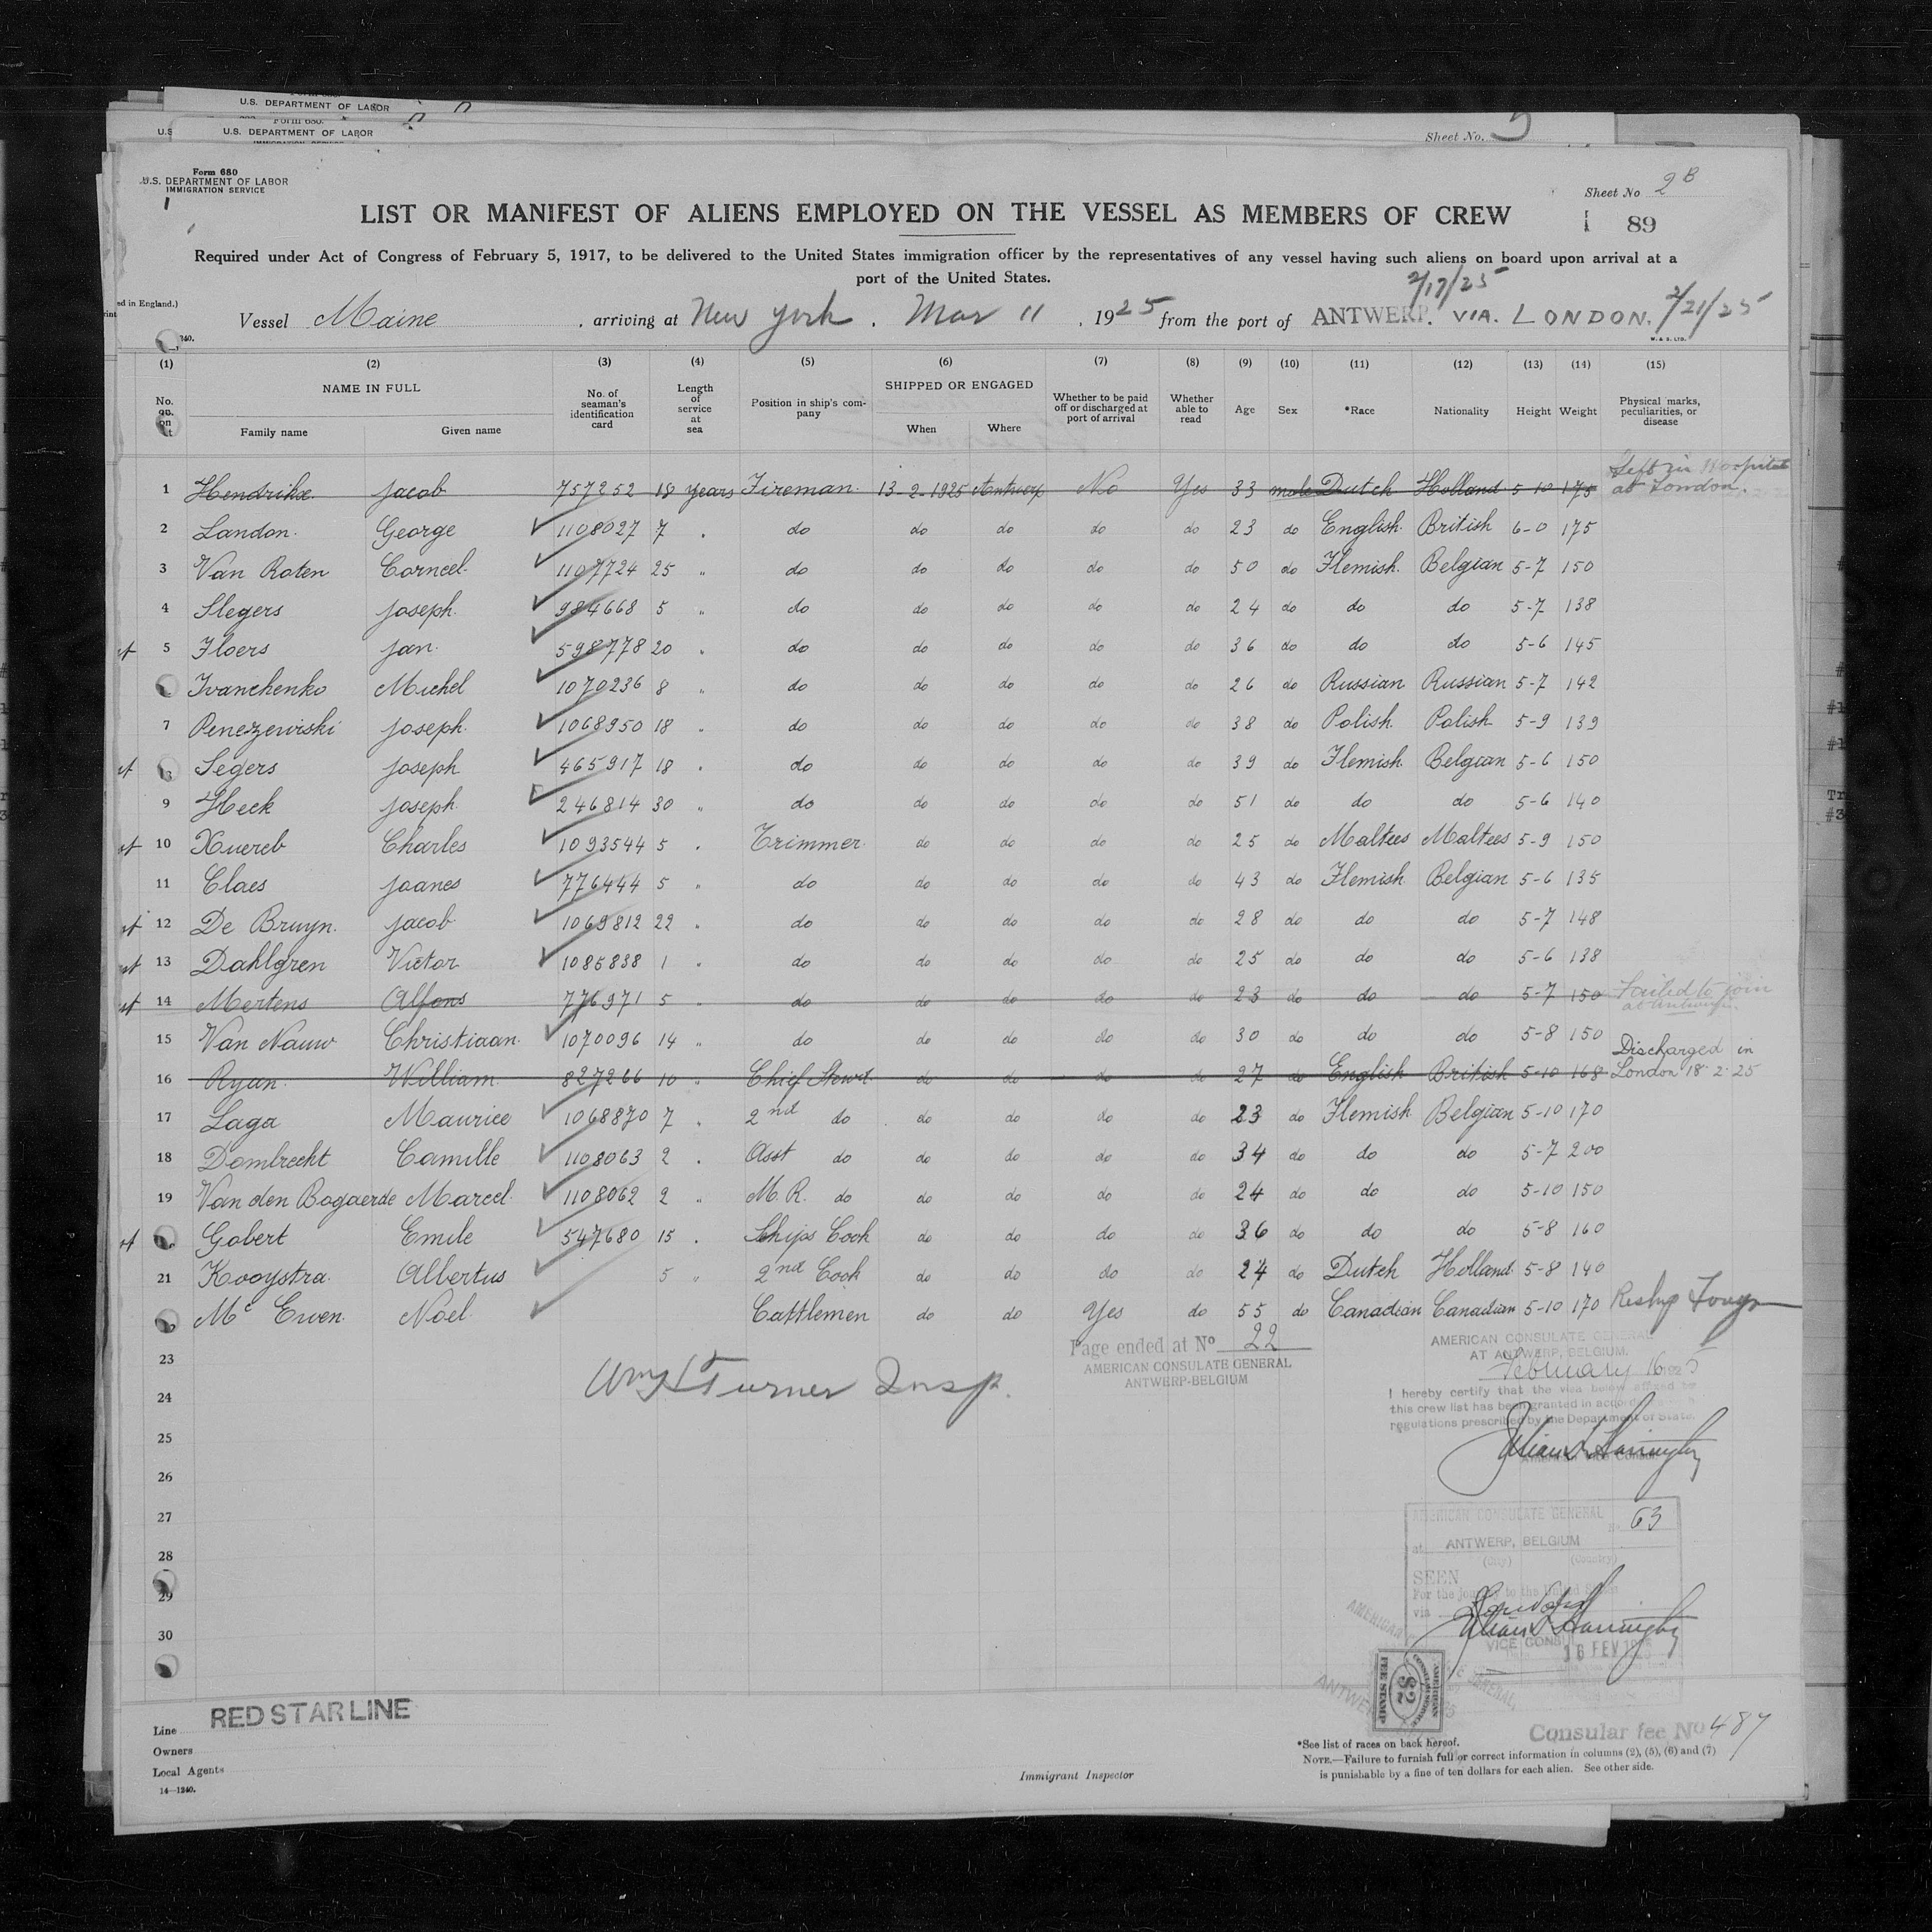 U.S. DEPARTMENT OF LABOR
Form 680.
U.S. DEPARTMENT OF LABOR
Sheet No. 5
Form 680
U.S. DEPARTMENT OF LABOR
IMMIGRATION SERVICE
Sheet No 2B
89
LIST OR MANIFEST OF ALIENS EMPLOYED ON THE VESSEL AS MEMBERS OF CREW
Required under Act of Congress of February 5, 1917, to be delivered to the United States immigration officer by the representatives of any vessel having such aliens on board upon arrival at a
port of the United States.
2/17/25
ed in England.)
Vessel Maine, arriving at New York, Mar 11, 1925 from the port of ANTWERP. VIA. LONDON. 2/21/25
W. & S. LTD.
(1) (2) (3) (4) (5) (6) (7) (8) (9) (10) (11) (12) (13) (14) (15)
No. on NAME IN FULL Family name Given name No. of seaman's identification card Length of service at sea Position in ship's company SHIPPED OR ENGAGED When Where Whether to be paid off or discharged at port of arrival Whether able to read Age Sex *Race Nationality Height Weight Physical marks, peculiarities, or disease
1 Hendrikx Jacob 757252 18 years Fireman 13-2-1925 Antwerp No Yes 33 male Dutch Holland 5-10 175 Left in Hospital at London.
2 Landon George 1108027 7 " do do do do do 23 do English British 6-0 175
3 Van Roten Corneel 1107724 25 " do do do do do 50 do Flemish Belgian 5-7 150
4 Slegers Joseph 984668 5 " do do do do do 24 do do do 5-7 138
5 Floers Jan 598778 20 " do do do do do 36 do do do 5-6 145
Ivanchenko Michel 1070236 8 " do do do do do 26 do Russian Russian 5-7 142
7 Penezewiski Joseph 1068950 18 " do do do do do 38 do Polish Polish 5-9 139
Segers Joseph 465917 18 " do do do do do 39 do Flemish Belgian 5-6 150
9 Heck Joseph 246814 30 " do do do do do 51 do do do 5-6 140
10 Xuereb Charles 1093544 5 " Trimmer do do do do 25 do Maltees Maltees 5-9 150
11 Claes Joanes 776444 5 " do do do do do 43 do Flemish Belgian 5-6 135
12 De Bruyn Jacob 1069812 22 " do do do do do 28 do do do 5-7 148
13 Dahlgren Victor 1085838 1 " do do do do do 25 do do do 5-6 138
14 Mertens Alfons 776971 5 " do do do do do 23 do do do 5-7 150 Failed to join at Antwerp.
15 Van Nauw Christiaan 1070096 14 " do do do do do 30 do do do 5-8 150
16 Ryan William 827266 10 " Chief Stewd. do do do do 27 do English British 5-10 168 Discharged in London 18.2.25
17 Laga Maurice 1068870 7 " 2nd do do do do do 23 do Flemish Belgian 5-10 170
18 Dombrecht Camille 1108063 2 " Asst do do do do do 34 do do do 5-7 200
19 Van den Bogaerde Marcel 1108062 2 " M.R. do do do do do 24 do do do 5-10 150
Gobert Emile 547680 15 " Ships Cook do do do do 36 do do do 5-8 160
21 Kooystra Albertus 5 " 2nd Cook do do do do 24 do Dutch Holland 5-8 140
Mc Ewen Noel Cattlemen do do Yes do 55 do Canadian Canadian 5-10 170 Reship Foreign
23
24
25
26
27
28
29
30
Page ended at No 22
AMERICAN CONSULATE GENERAL
ANTWERP-BELGIUM
Wm H Turner Insp.
AMERICAN CONSULATE GENERAL
AT ANTWERP, BELGIUM.
February 16 1925
I hereby certify that the visa below affixed to
this crew list has been granted in accordance
regulations prescribed by the Department of State.
American Vice Consul
AMERICAN CONSULATE GENERAL
No 63
at ANTWERP, BELGIUM
(City) (Country)
SEEN
For the journey to the United States
via London
VICE CONSUL
16 FEV 1925
AMERICAN CONSULAR SERVICE
$2
FEE STAMP
Consular fee No 487
RED STAR LINE
Line
Owners
Local Agents
14—1240.
Immigrant Inspector
*See list of races on back hereof.
NOTE.—Failure to furnish full or correct information in columns (2), (5), (6) and (7)
is punishable by a fine of ten dollars for each alien. See other side.